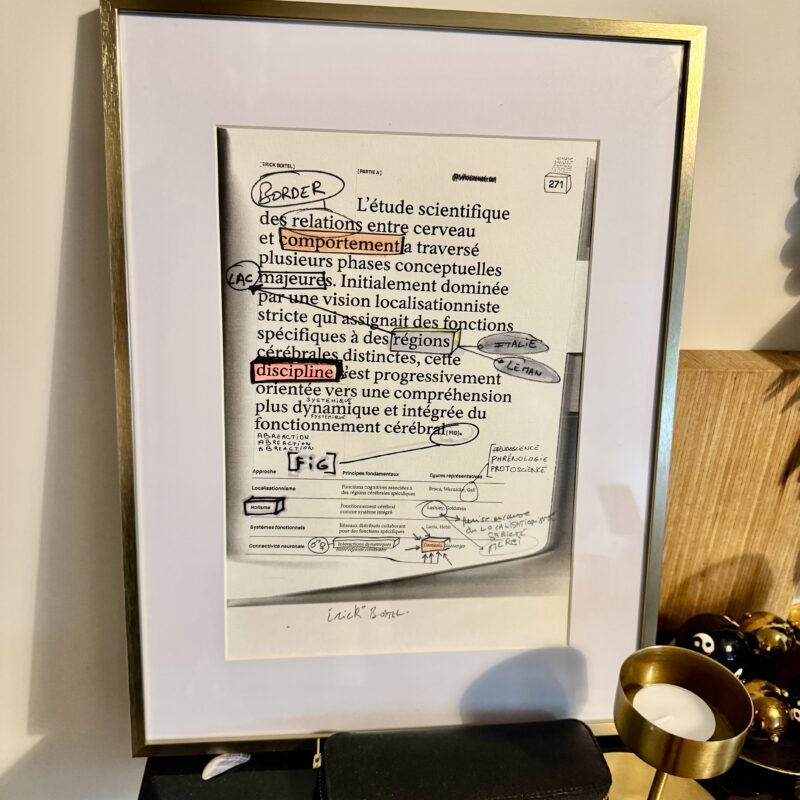 [ERICK BOITEL]
[PARTIE A]
271
BORDER
L'étude scientifique
des relations entre cerveau
et comportement a traversé
plusieurs phases conceptuelles
LAC
majeures. Initialement dominée
par une vision localisationniste
stricte qui assignait des fonctions
spécifiques à des régions
ITALIE
cérébrales distinctes, cette
LEMAN
discipline s'est progressivement
orientée vers une compréhension
SYSTÉMIQUE
plus dynamique et intégrée du
SYSTÉMIQUE
fonctionnement cérébral [FIG].
ABREACTION
ABREACTION
ABREACTION
[FIG]
PSEUDOSCIENCE
PHRÉNOLOGIE
PROTOSCIENCE
Approche Principes fondamentaux figures représentatives
Localisationnisme Fonctions cognitives associées à des régions cérébrales spécifiques Broca, Wernicke, Gall
Holisme Fonctionnement cérébral comme système intégré Lashley, Goldstein
Systèmes fonctionnels Réseaux distribués collaborant pour des fonctions spécifiques Luria, Hebb
LOCALISATION
MERCI
Connectivité neuronale Interactions dynamiques entre régions cérébrales Damasio,
"ERICK" BOITEL.